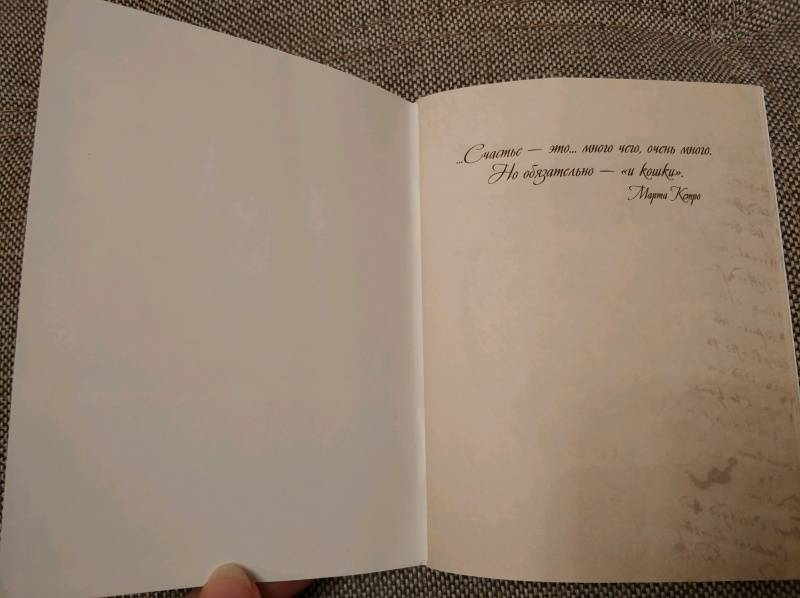 ...Счастье — это... много чего, очень много.
Но обязательно — «и кошки».
Марта Кетро